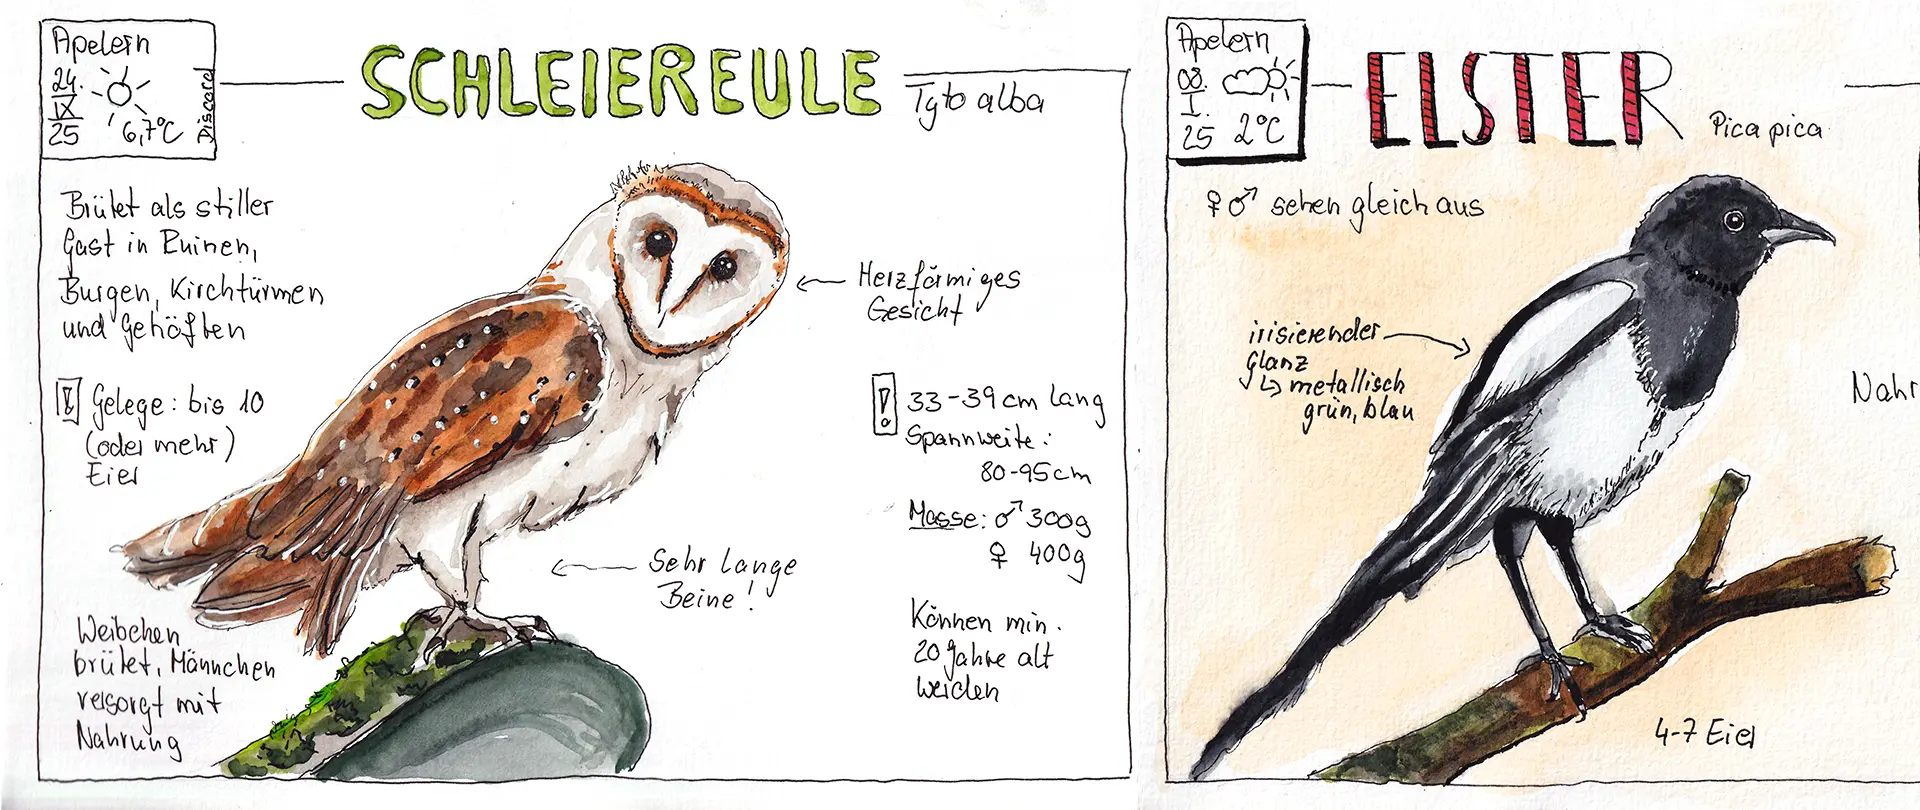 Apelern
24.
IX
25
6,7°C
Discord
SCHLEIEREULE
Tyto alba
Brütet als stiller
Gast in Ruinen,
Burgen, Kirchtürmen
und Gehöften
! Gelege: bis 10
(oder mehr)
Eier
Weibchen
brütet, Männchen
versorgt mit
Nahrung
← Herzförmiges
Gesicht
← Sehr lange
Beine!
! 33-39cm lang
Spannweite:
80-95cm
Masse: ♂ 300g
♀ 400g
Können min.
20 Jahre alt
werden
Apelern
08.
I.
25
2°C
ELSTER
Pica pica
♀♂ sehen gleich aus
irisierender →
Glanz
↳ metallisch
grün, blau
Nahr
4-7 Eier